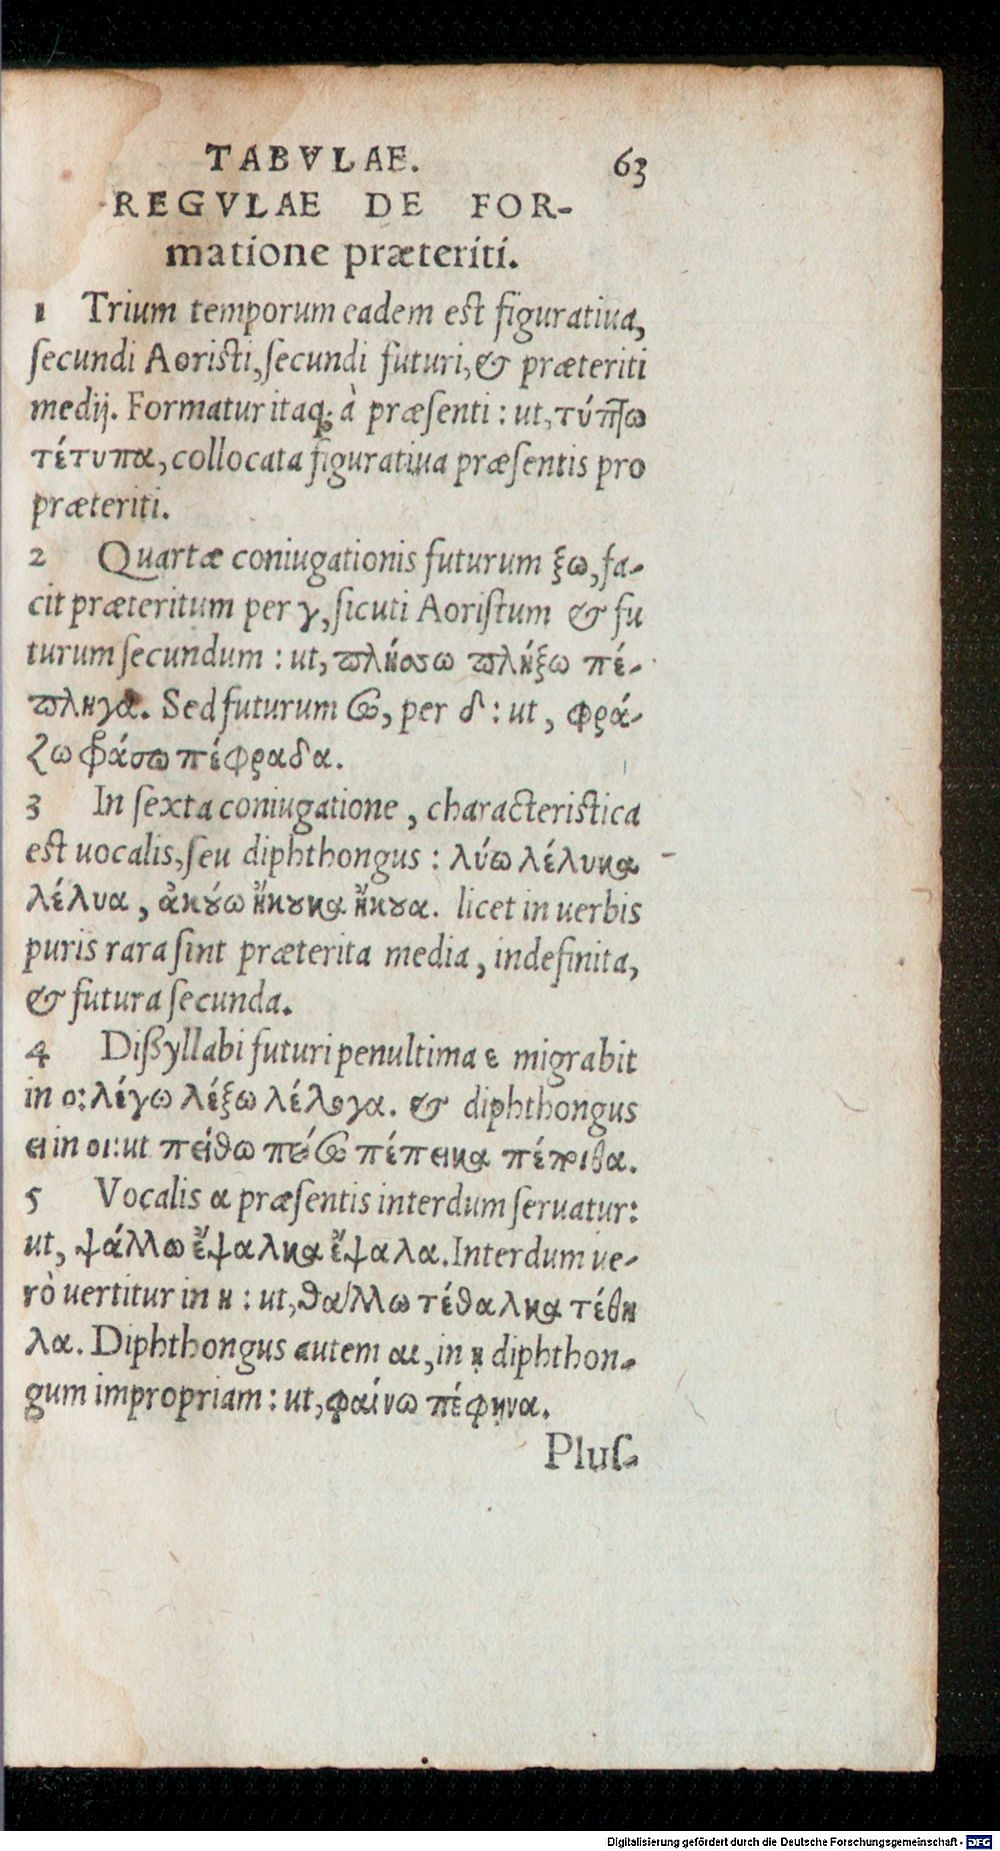 TABVLAE. 63
REGVLAE DE FOR-
matione præteriti.
1 Trium temporum eadem est figuratiua,
secundi Aoristi, secundi futuri, & præteriti
medij. Formatur itaq; à præsenti : ut, τύπτω
τέτυπα, collocata figuratiua præsentis pro
præteriti.
2 Quartæ coniugationis futurum ξω, fa-
cit præteritum per γ, sicuti Aoristum & fu
turum secundum : ut, πλήσσω πλήξω πέ-
πληγα. Sed futurum σω, per δ : ut, φρά-
ζω φράσω πέφραδα.
3 In sexta coniugatione, characteristica
est uocalis, seu diphthongus : λύω λέλυκα
λέλυα, ἀκούω ἤκουκα ἤκουα. licet in uerbis
puris rara sint præterita media, indefinita,
& futura secunda.
4 Dissyllabi futuri penultima ε migrabit
in ο: λέγω λέξω λέλογα. & diphthongus
ει in οι: ut πείθω πείσω πέπεικα πέποιθα.
5 Vocalis α præsentis interdum seruatur:
ut, ψάλλω ἔψαλκα ἔψαλα. Interdum ue-
rò uertitur in η : ut, θάλλω τέθαλκα τέθη
λα. Diphthongus autem αι, in ῃ diphthon-
gum impropriam : ut, φαίνω πέφῃνα.
Plus-
Digitalisierung gefördert durch die Deutsche Forschungsgemeinschaft - DFG